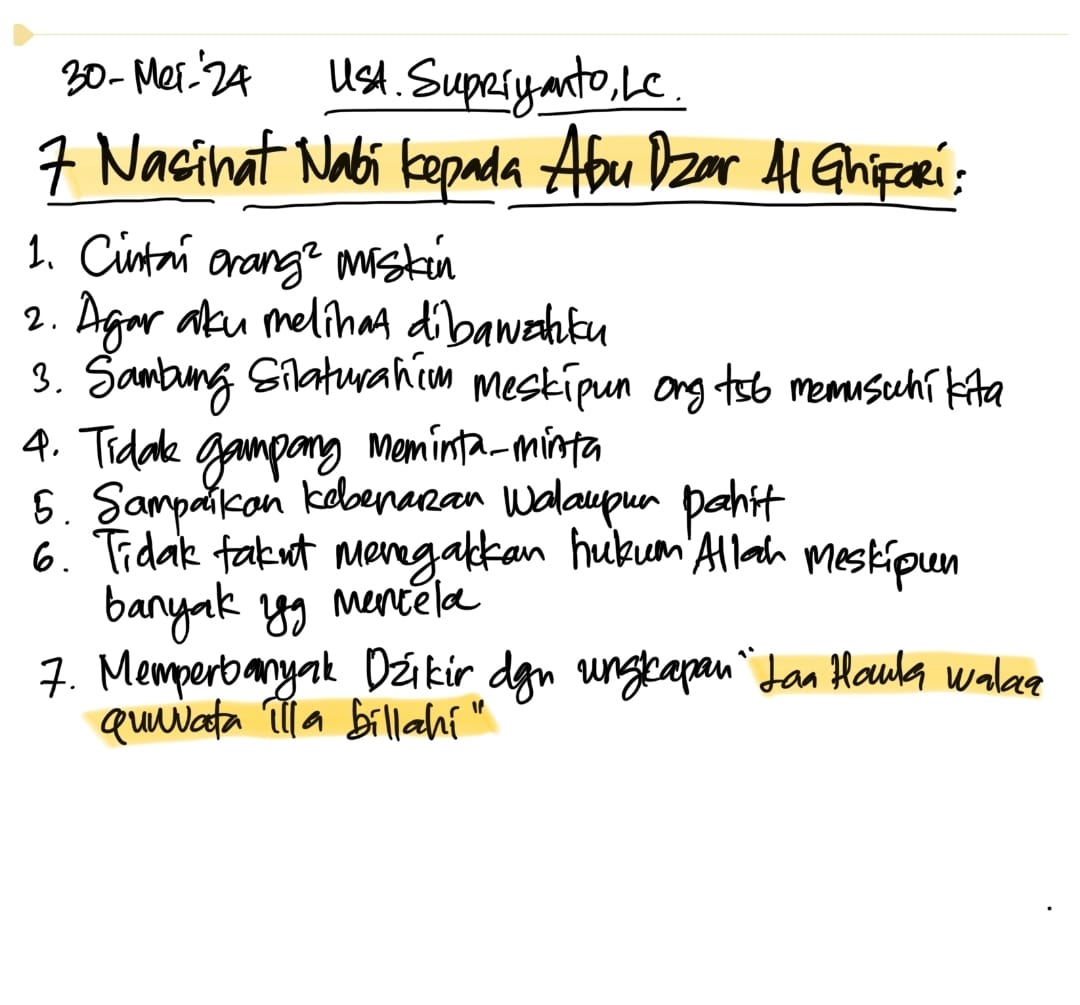 30-Mei-'24 Ust. Supriyanto, LC.
7 Nasihat Nabi kepada Abu Dzar Al Ghifari:
1. Cintai orang² miskin
2. Agar aku melihat dibawahku
3. Sambung Silaturahim meskipun org tsb memusuhi kita
4. Tidak gampang meminta-minta
5. Sampaikan kebenaran walaupun pahit
6. Tidak takut menegakkan hukum Allah meskipun
banyak yg mencela
7. Memperbanyak Dzikir dgn ungkapan "Laa Haula walaa
quwwata illa billahi"